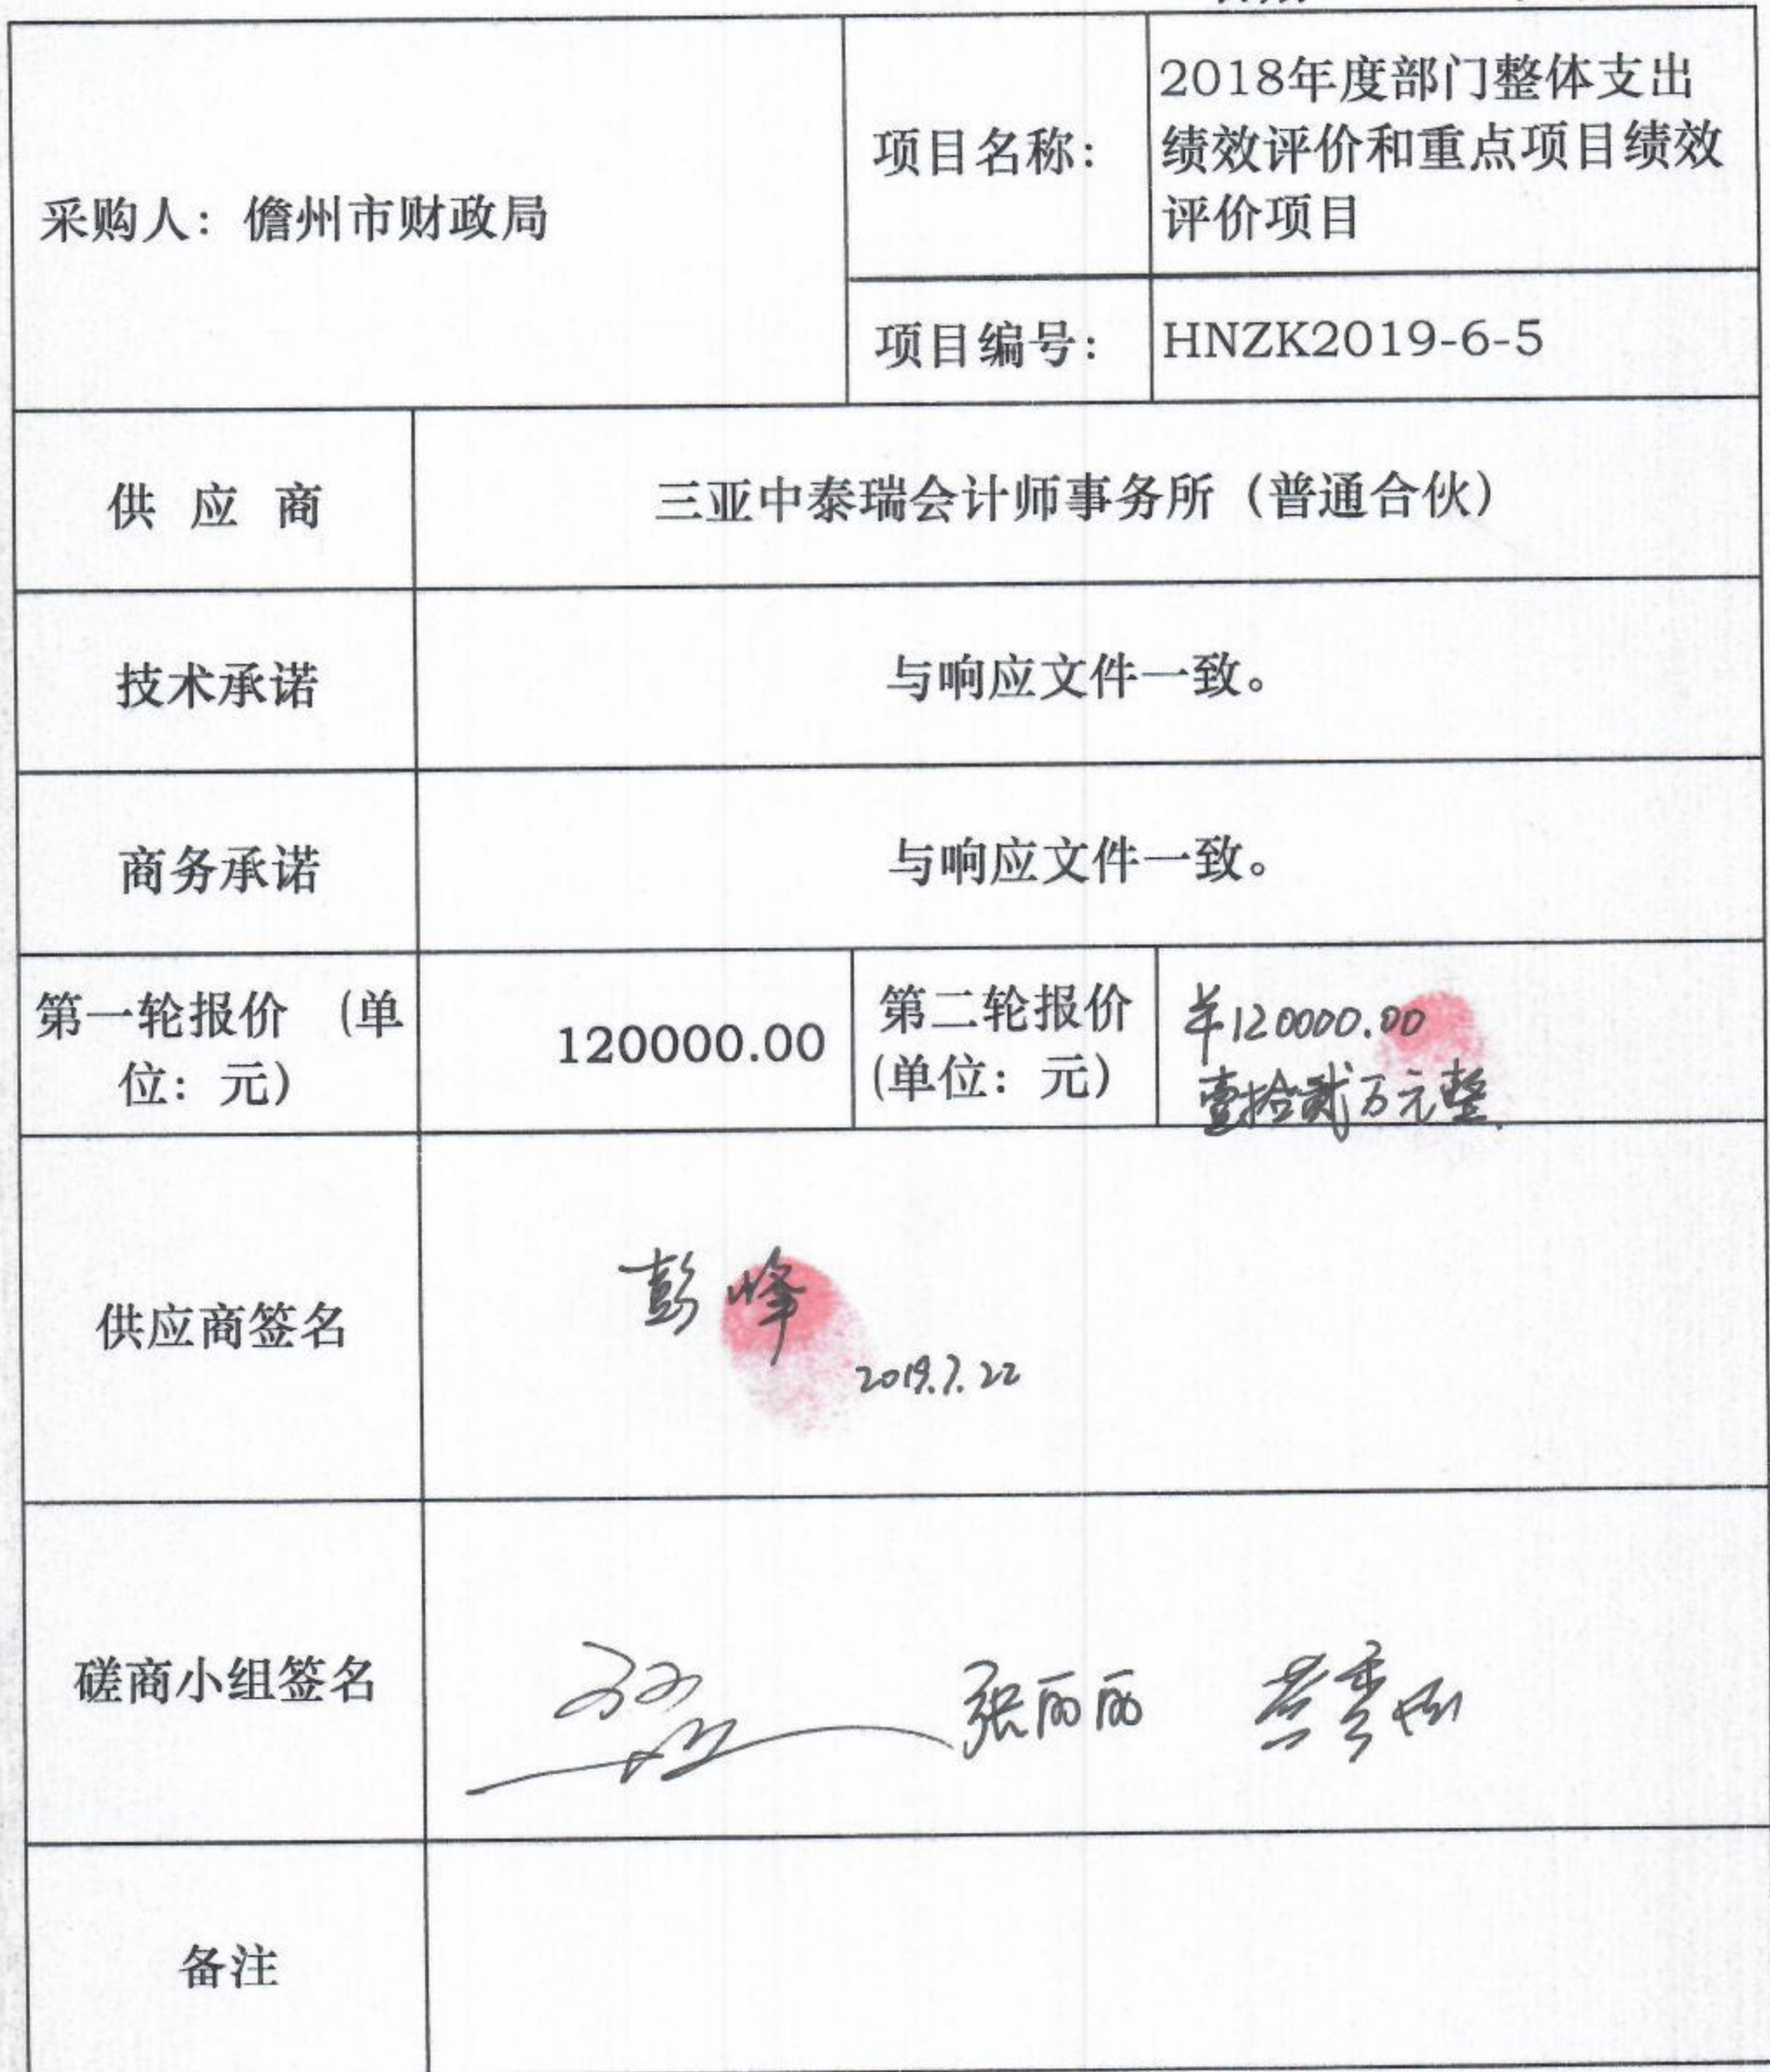 采购人：儋州市财政局
项目名称：
2018年度部门整体支出
绩效评价和重点项目绩效
评价项目
项目编号：
HNZK2019-6-5
供 应 商
三亚中泰瑞会计师事务所（普通合伙）
技术承诺
与响应文件一致。
商务承诺
与响应文件一致。
第一轮报价 （单
位：元）
120000.00
第二轮报价
(单位：元）
¥120000.00
壹拾贰万元整.
供应商签名
彭峰
2019.7.22
磋商小组签名
张丽丽
备注